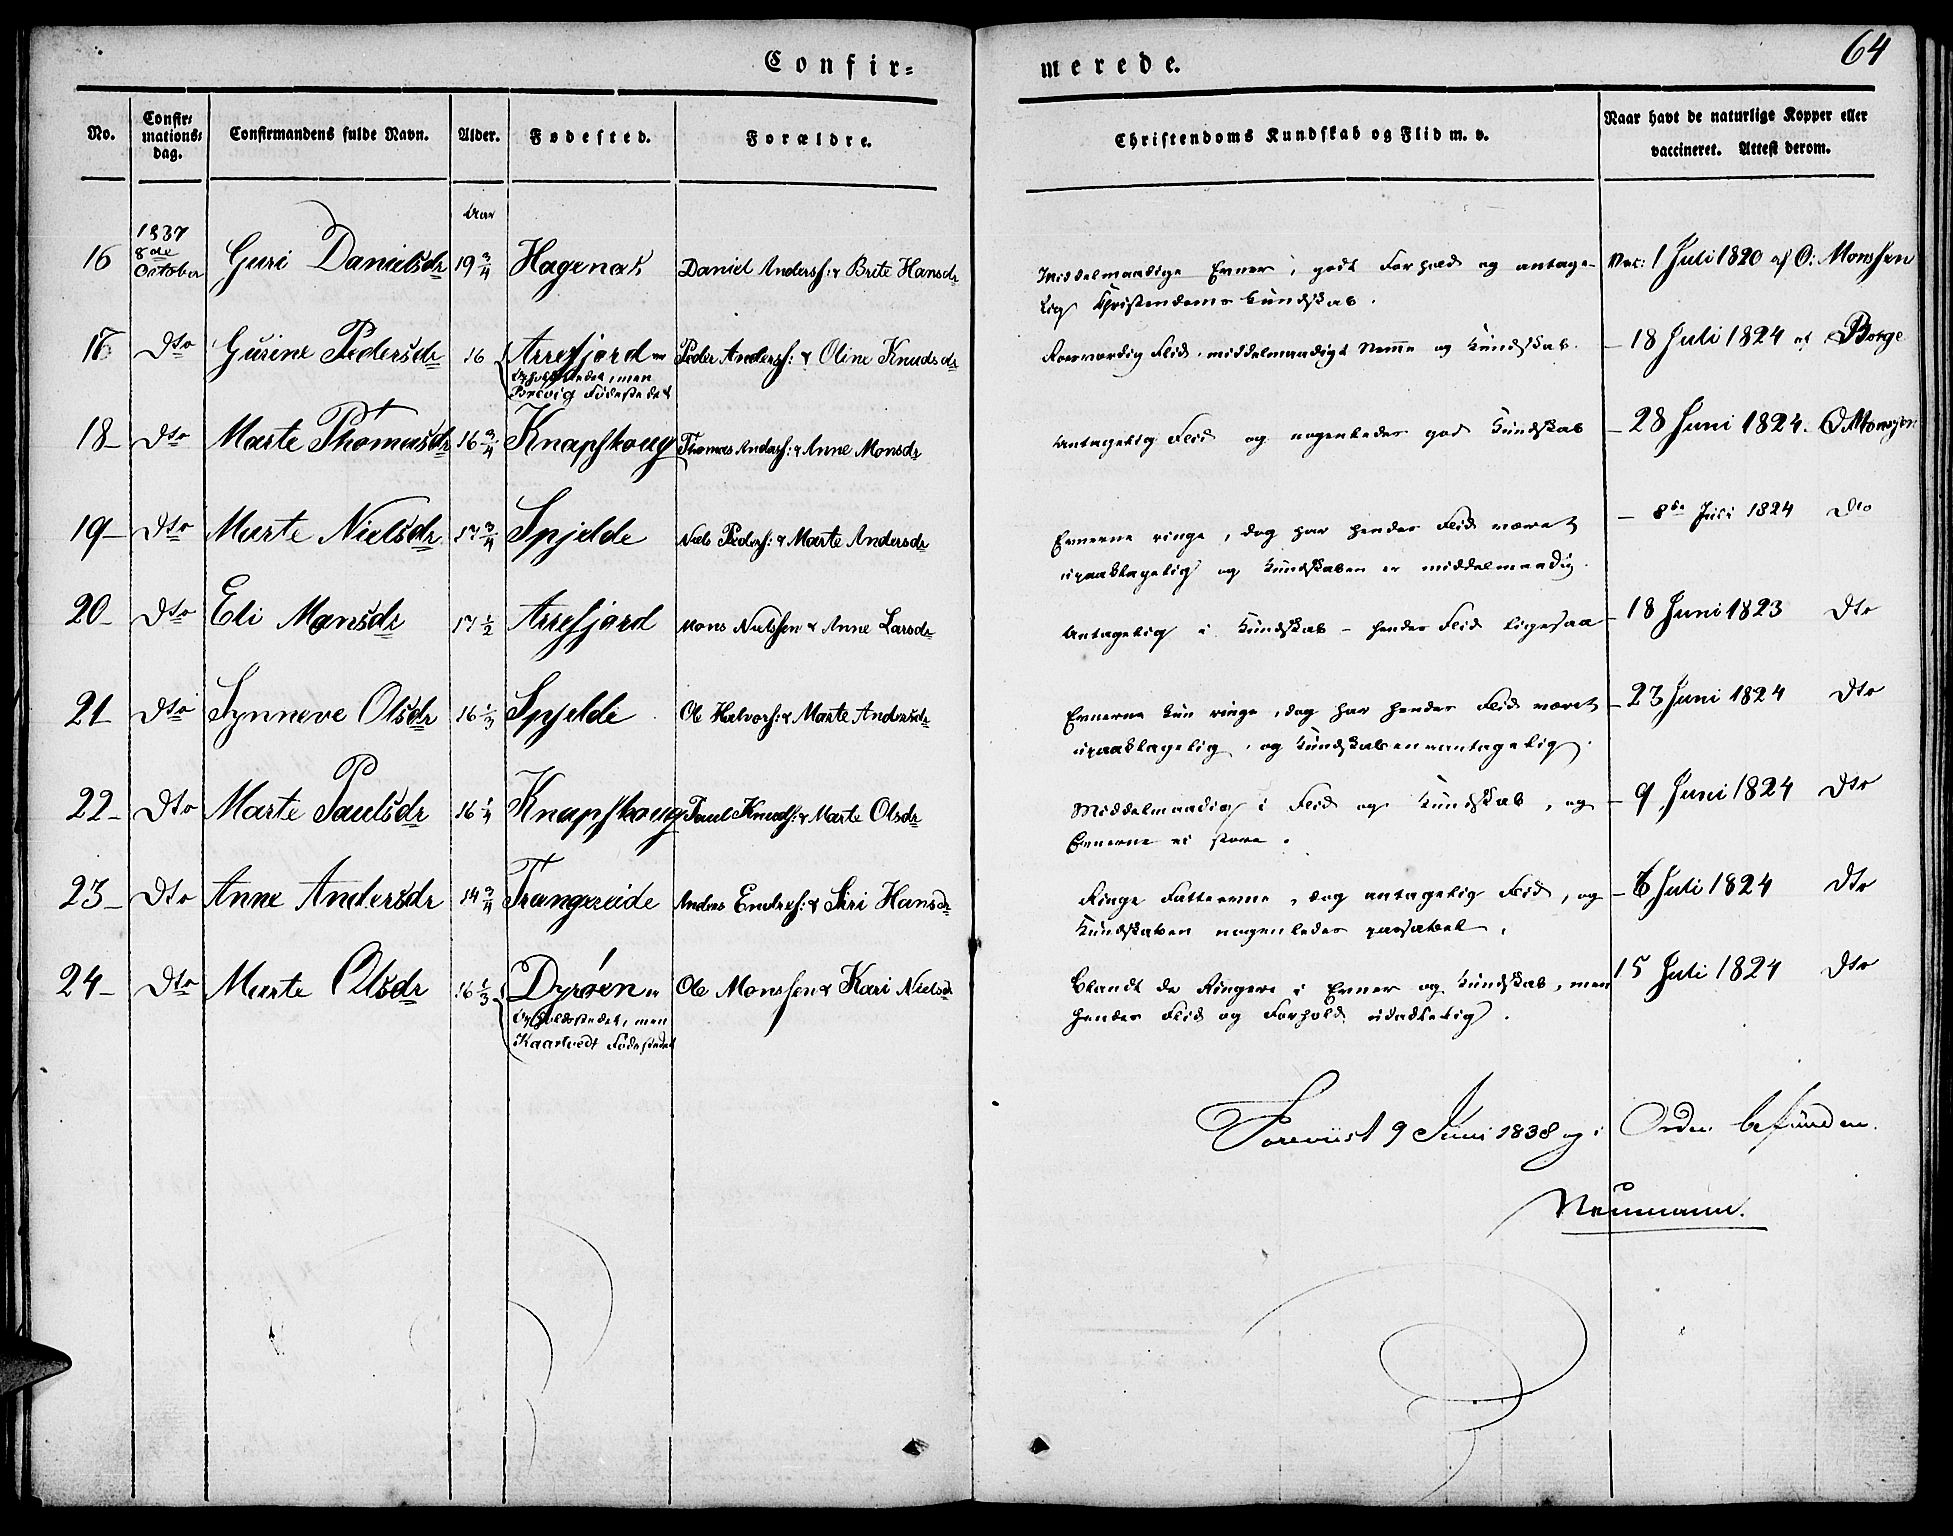 64
Confir= merede.
No. Confir= mations= dag. Confirmandens fulde Navn. Alder. Fødested. Forældre. Christendoms Kundskab og Flid m. v. Naar havt de naturlige Kopper eller vaccineret. Attest derom.
Aar
16 1837 8de October Guri Danielsdr 19 3/4 Hagenæs Daniel Anders: & Brite Hansdr Middelmaadige Evner, godt Forhold og antage- Vac: 1 Juli 1820 af O: Monssen
lig Christendoms Kundskab.
17 Dto Gurine Pedersdr 16 Arrefjord er Peder Anders: & Oline Knudsdr Roesværdig Flid, middelmaadigt Nemme og Kundskab. - 18 Juli 1824 af Borge
Opholdsstedet, men
Brevig Fødestedet
18 - Dto Marte Thomasdr 16 3/4 Knapskoug Thomas Anders: & Anne Monsdr Antagelig Flid og nogenledes god Kundskab - 28 Juni 1824. O Monssen
19 - Dto Marte Nielsdr 17 3/4 Spjelde Niels Peders: & Marte Andersdr Evnerne ringe, dog har hendes Flid været - 8de Juli 1824 Dto
upaaklagelig og Kundskaben er middelmaadig.
20 - Dto Eli Monsdr 17 1/2 Arrefjord Mons Nielssen & Anne Larsdr Antagelig i Kundskab - hendes Flid ligesaa - 18 Juni 1823 Dto
21 - Dto Synneve Olsdr 16 1/3 Spjelde Ole Halvors: & Marte Andersdr Evnerne kun ringe, dog har hendes Flid været - 23 Juni 1824 Dto
upaaklagelig, og Kundskaben antagelig.
22 - Dto Marte Paulsdr 16 1/4 Knapskoug Paul Knuds: & Marte Olsdr Middelmaadig i Flid og Kundskab, og - 9 Juni 1824 Dto
Evnerne ei store.
23 - Dto Anne Andersdr 14 3/4 Trangereide Anders Endres: & Siri Hansdr Ringe Fatteevne, dog antagelig Flid, og - 6 Juli 1824 Dto
Kundskaben nogenledes passabel.
24 - Dto Marte Olsdr 16 1/3 Dyrøen er Ole Monssen & Kari Nielsdr Blandt de Ringere i Evner og Kundskab, men 15 Juli 1824 Dto
Opholdsstedet, men hendes Flid og Forhold udadlelig.
Kaartvedt Fødestedet
Foreviist 9 Juni 1838 og i Orden befunden.
Neumann.